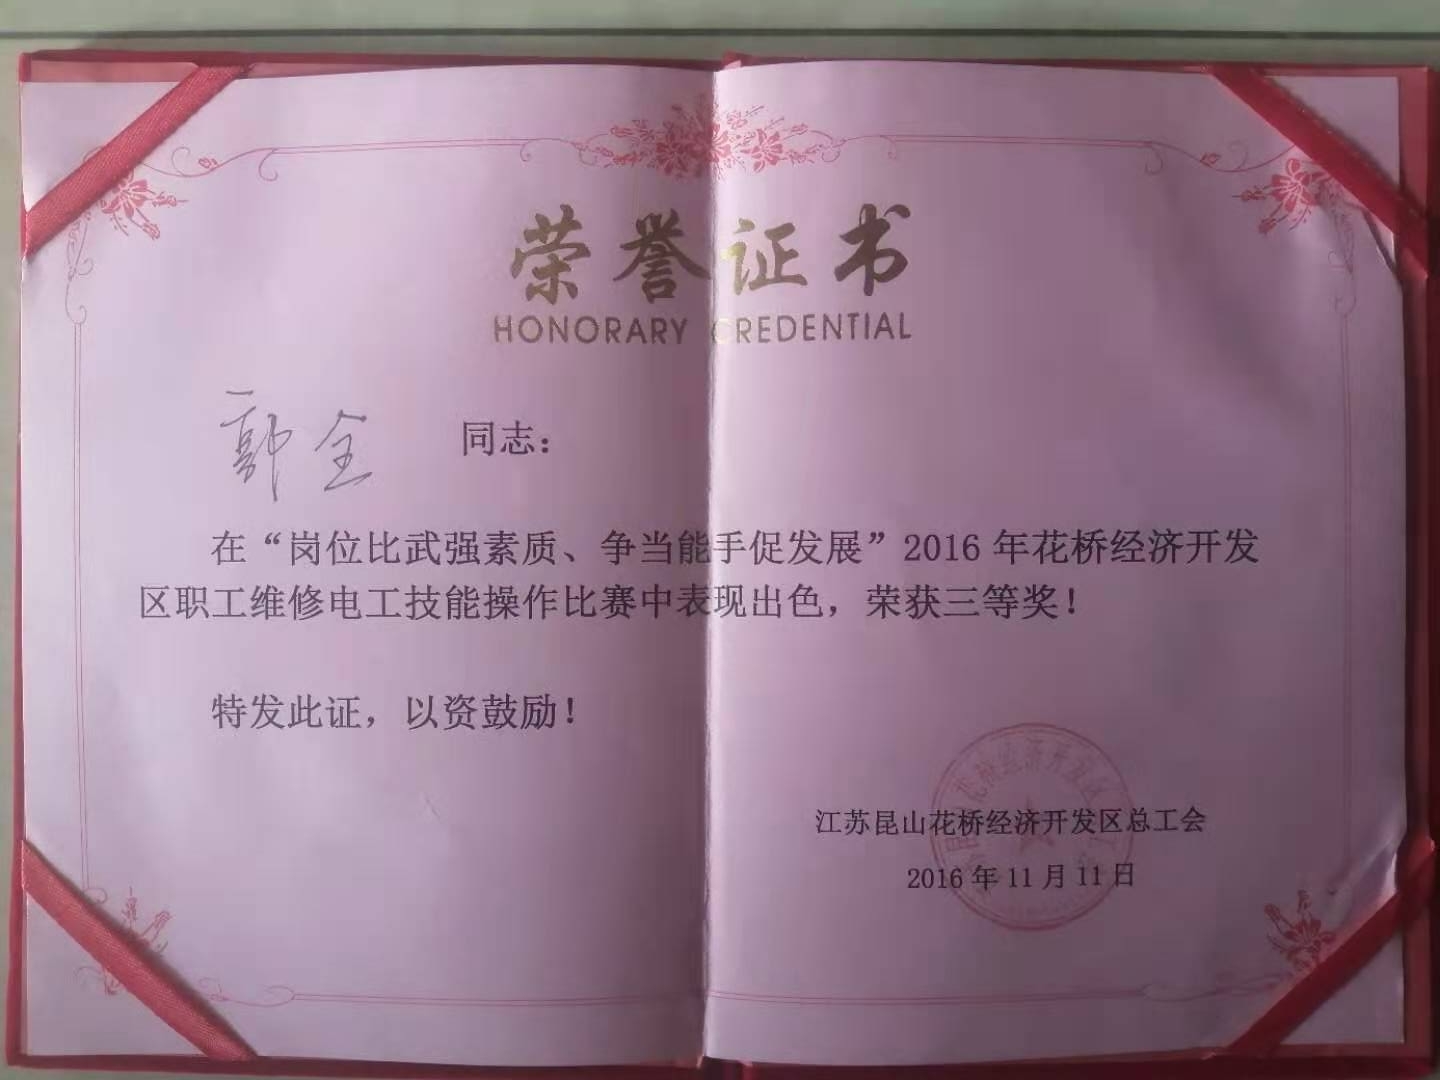 荣誉证书
HONORARY CREDENTIAL
郭全 同志：
在“岗位比武强素质、争当能手促发展”2016年花桥经济开发
区职工维修电工技能操作比赛中表现出色，荣获三等奖！
特发此证，以资鼓励！
江苏昆山花桥经济开发区总工会
2016年11月11日